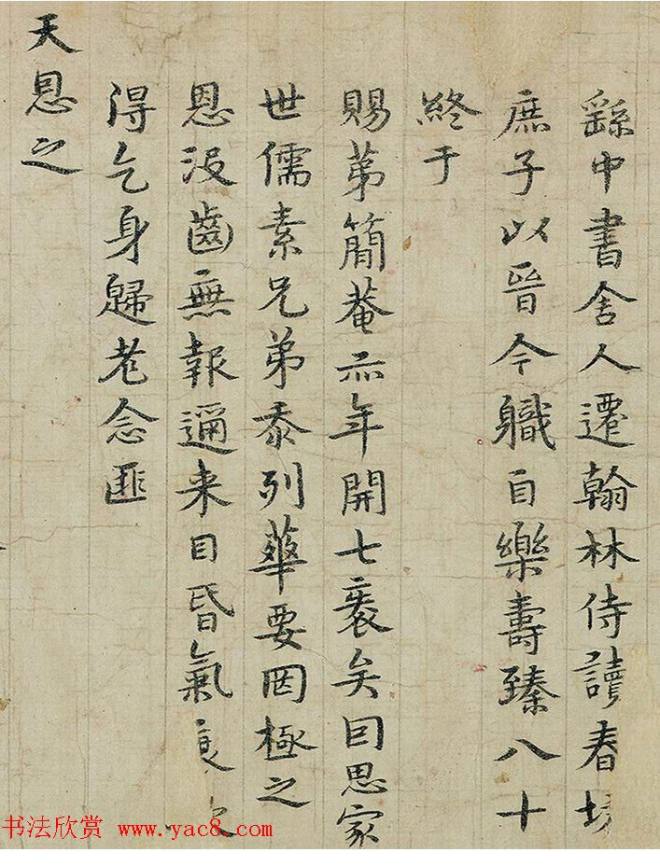 繇中書舍人遷翰林侍讀春坊
庶子以晉今軄自樂壽臻八十
終于
賜苐簡菴亦年開七袠矣回思家
世儒素兄弟忝列華要罔極之
恩没齒無報邇来目昏氣衰
得乞身歸老念匪
天恩之
书法欣赏 www.yac8.com